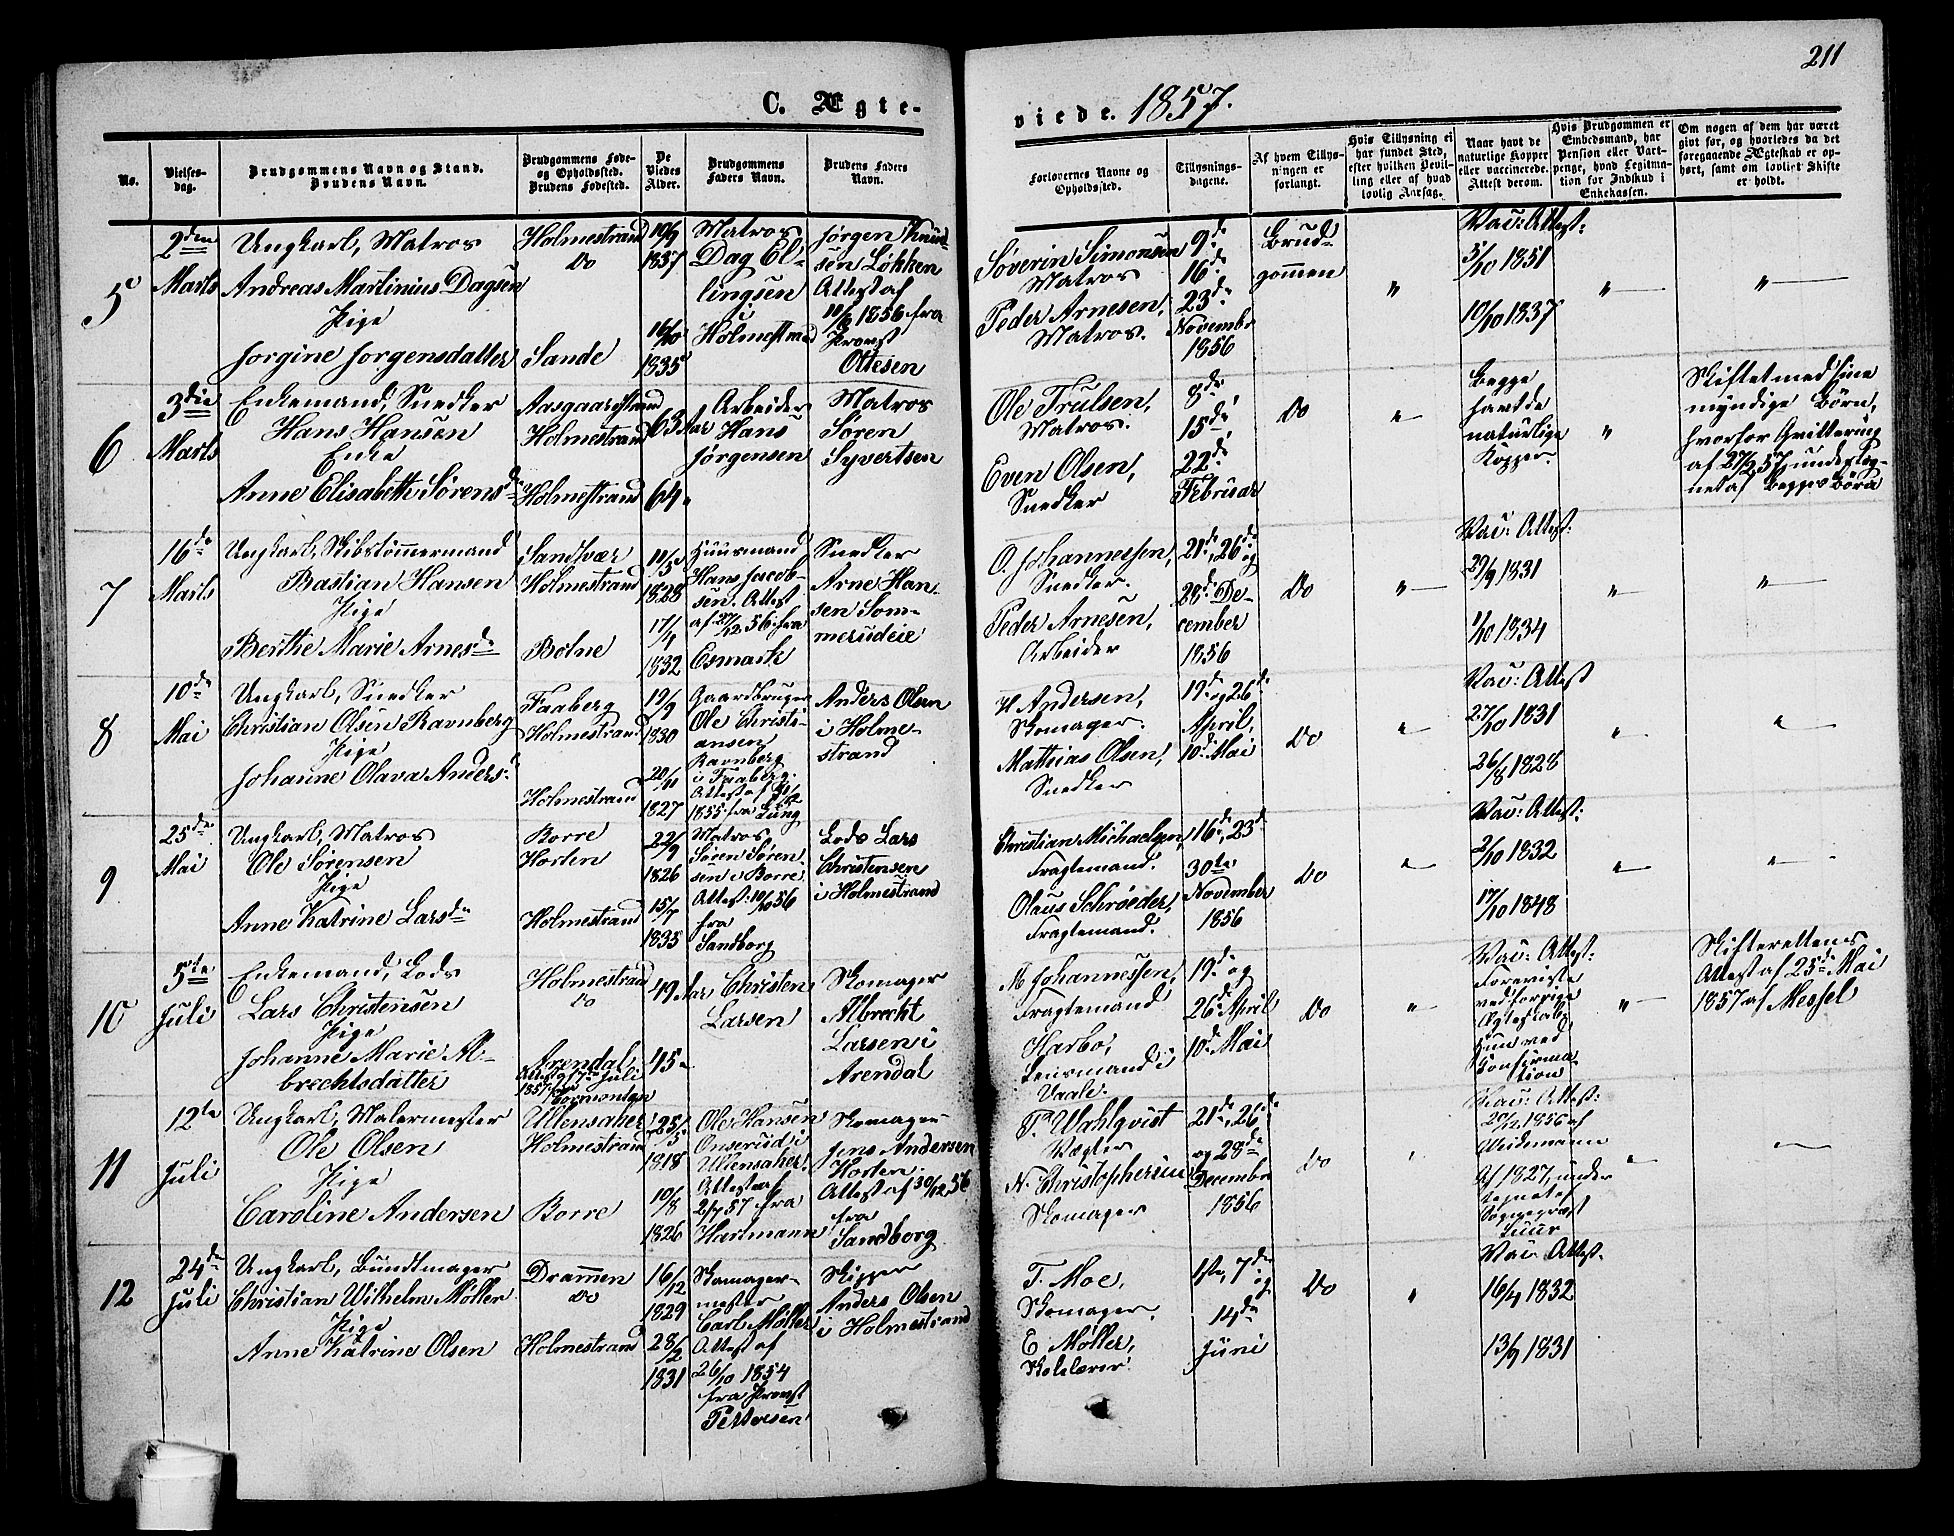 211
C. Ægte-
viede. 1857.
No.
Vielses-
dag.
Brudgommens Navn og Stand.
Brudens Navn.
Brudgommens Føde-
og Opholdssted.
Brudens Fødested.
De
Viedes
Alder.
Brudgommens
Faders Navn.
Brudens Faders
Navn.
Forlovernes Navne og
Opholdssted.
Tillysnings-
dagene.
Af hvem Tillys-
ningen er
forlangt.
Hvis Tillysning ei
har fundet Sted,
efter hvilken Bevil-
ling eller af hvad
lovlig Aarsag.
Naar havt de
naturlige Kopper
eller vaccinerede.
Attest derom.
Hvis Brudgommen er
Embedsmand, har
Pension eller Vart-
penge, hvad Legitima-
tion for Indskud i
Enkekassen.
Om nogen af dem har været
gift før, og hvorledes da det
foregaaende Ægteskab er op-
hørt, samt om lovligt Skifte
er holdt.
5
2den
Marts
Ungkarl, Matros
Andreas Martinius Dagsen
Pige
Jorgine Jorgensdatter
Holmestrand
Do
Sande
19/9
1837
16/10
1835
Matros
Dag El-
lingsen
i Holmestrand
Jørgen Knud-
sen Løkken
Attest af
1856 fra
Provst
Ottesen
Søverin Simonsen
Matros
Peder Arnesen,
Matros.
9de
16de
23de
Novembr
1856
Brud-
gommen
"
Vac: Attest:
5/10 1851
10/10 1837
"
"
6
3die
Marts
Enkemand, Snedker
Hans Hansen
Enke
Anne Elisabeth Sørensd.
Aasgaardstrand
Holmestrand
Holmestrand
63 Aar
64 "
Arbeider
Hans
Jørgensen
Matros
Soren
Syvertsen
Ole Trulsen,
Matros.
Even Olsen,
Snedker
8de
15de
22de
Februar
Do
"
Begge
havt de
naturlige
Kopper.
"
Skiftet med sine
myndige Børn,
hvorfor Qvittering
af 27/2 57, underteg-
net af begges Børn
7
16de
Marts
Ungkarl, Skibstømmermand
Bastian Hansen
Pige
Berthe Marie Arnesd.
Sandsvær
Holmestrand
Botne
11/5
1828
17/4
1832
Huusmand
Hans Jacob-
sen. Attest
af 27/12 56 fra
Esmark
Snedker
Arne Han-
sen Som-
merudeie
O. Johannessen,
Snedker.
Peder Arnesen,
Arbeider
21de, 26de
og
28de De-
cember
1856
Do
"
Vac: Attest:
29/9 1831
1/10 1834
"
"
8
10de
Mai
Ungkarl, Snedker
Christian Olsen Ravnberg
Pige
Johanne Olava Anders.
Faaberg
Holmestrand
Holmestrand
19/9
1830
20/11
1827
Gaardbruger
Ole Christi-
ansen
Ravnberg
i Faaberg.
Attest af
1855 fra Lung
Anders Olsen
i Holme-
strand
H Andersen,
Skomager.
Mathias Olsen,
Snedker
19de og 26de
April,
10de Mai
Do
"
Vac: Attest
27/10 1831
26/8 1828
"
"
9
25de
Mai
Ungkarl, Matros
Ole Sørensen
Pige
Anne Katrine Larsd.
Borre
Horten
Holmestrand
22/9
1826
15/7
1835
Matros
Søren Søren-
sen i Borre
Attest: 10/10 56
fra
Sandborg
Lods Lars
Christensen
i Holmestrand
Christian Michaelsen,
Fragtemand.
Olaus Schrøeder,
Fragtemand.
16de, 23de
30te
November
1856
Do
"
Vac: Attest:
2/10 1832
17/10 1848
"
"
10
5te
Juli
Enkemand, Lods
Lars Christensen
Pige
Johanne Marie Al-
brechtsdatter
Holmestrand
do
Arendal
Attest af 7de Juli
1857 fra
49 Aar
45 "
Christen
Larsen
Skomager
Albrecht
Larsen i
Arendal
M Johannessen,
Fragtemand
Harbo,
Lensmand i
Vaale.
19de og
26de April
10de Mai
Do
"
Vac: Attest:
Foreviste
ved forrige
Ægteskab
Hun ved
Konfirma-
tion
"
Skifterettens
Attest af 25de Mai
1857 af Messel
11
12te
Juli
Ungkarl, Malermester
Ole Olsen
Pige
Caroline Andersen
Ullensaker
Holmestrand
Borre
25/5
1818
10/8
1826
Ole Hansen
Onserud i
Ullensaker.
Attest af
2/7 57 fra
Hartmann
Skomager
Jens Andersen
Horten
Attest af 30/12 56
fra
Sandborg
P. Wahlqvist
Vægter
N. Christophersen
Skomager
21de, 26de
og 28de
Decembr
1856
Do
"
Vac: Attest:
20/12 1856 af
Weidemann
Af 1827, under
tegnet af
Sognepræst
Luur
"
12
24de
Juli
Ungkarl, Bundtmager
Christian Wilhelm Møller
Pige
Anne Katrine Olsen
Drammen
do
Holmestrand
16/12
1829
28/2
1831
Skomager-
mester
Carl Møller
Attest af
26/10 1854
fra Provst
Pettersen
Skipper
Anders Olsen
i Holmestrand
T. Moe,
Skomager.
E Møller,
Skolelærer
1ste, 7de
og
14de
Juni
Do
"
Vac: Attest.
16/4 1832
13/9 1831